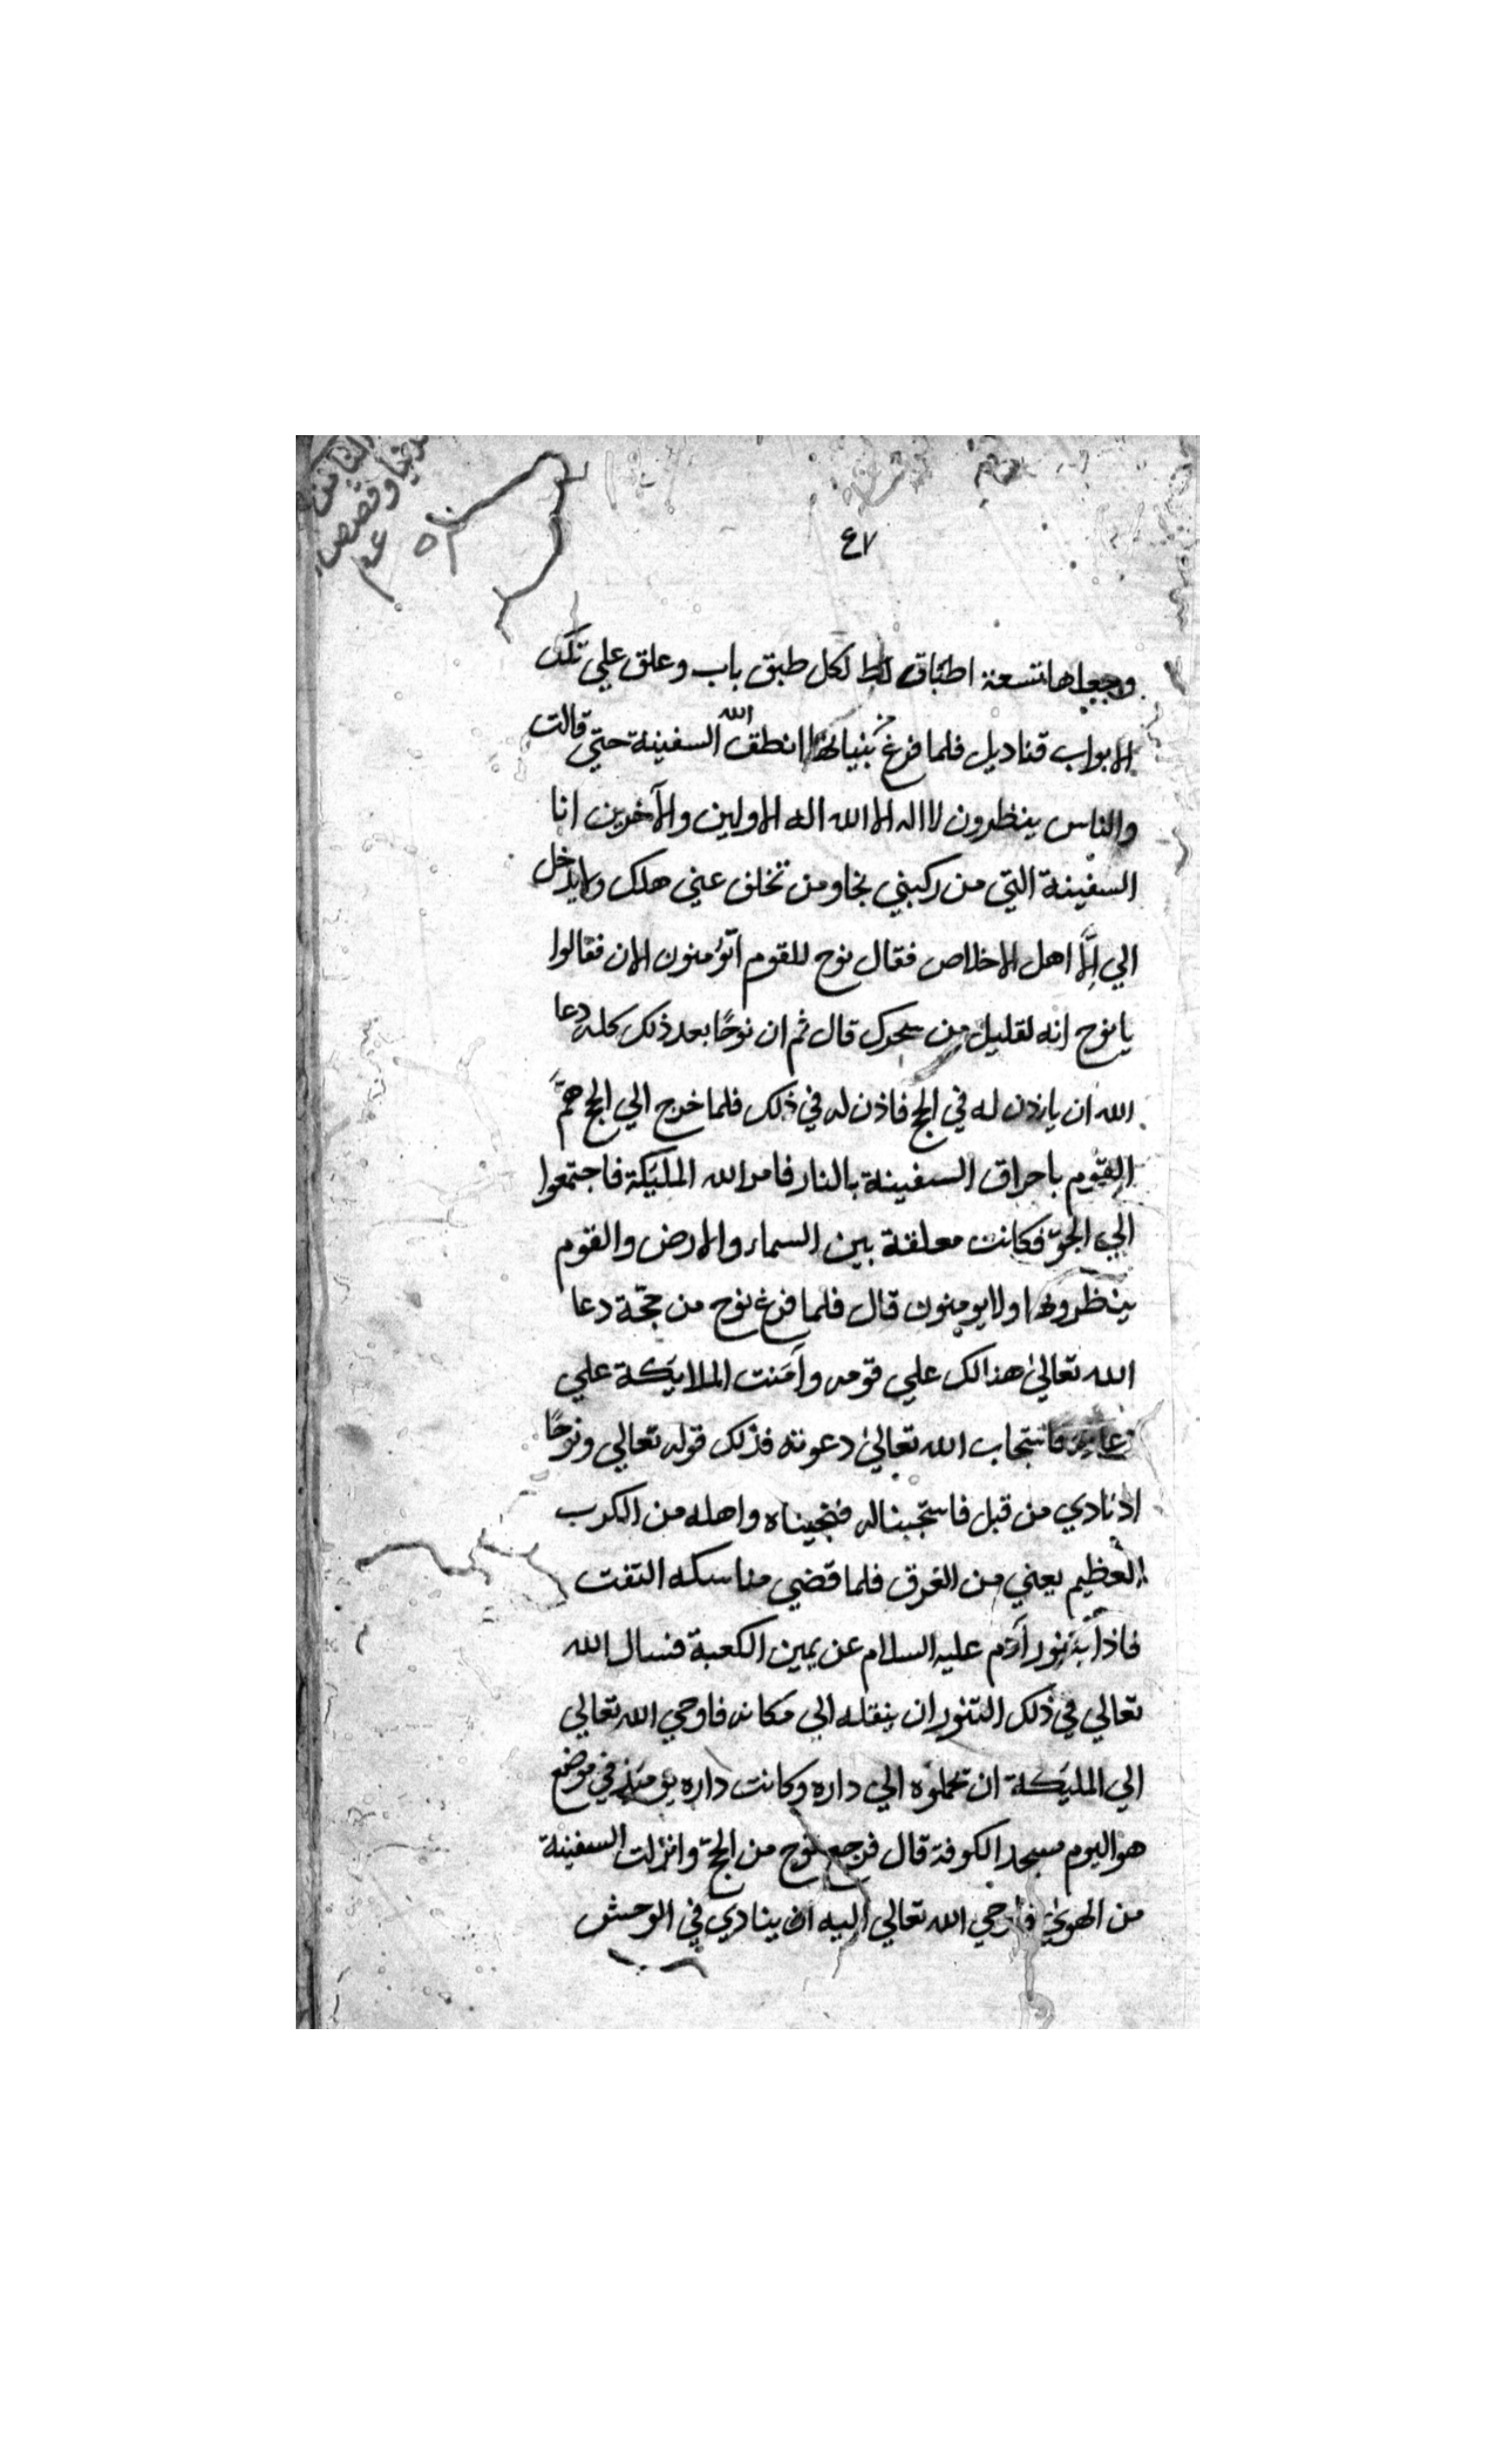 ٤٧
وجعلها تسعة اطباق لكل طبق باب وعلق علي تلك
الابواب قناديل فلما فرغ من بنيانها انطق الله السفينة حتي قالت
والناس ينظرون لااله الا الله اله الاولين والآخرين انا
السفينة التي من ركبني نجا ومن تخلف عني هلك ولايدخل
الي إلّا اهل الاخلاص فقال نوح للقوم اتؤمنون الان فقالوا
يا نوح انه لقليل من سحرك قال ثم ان نوحًا بعد ذلك كله دعا
الله ان ياذن له في الحج فاذن له في ذلك فلما خرج الي الحج همّ
القوم باحراق السفينة بالنار فامر الله المليكة فاجتمعوا
الي الجوّ فكانت معلقة بين السماء والارض والقوم
ينظرونها ولايومنون قال فلما فرغ نوح من حجّة دعا
الله تعالي هنالك علي قومه وآمنت الملايكة علي
فاستجاب الله تعالي دعوته فذلك قوله تعالي ونوحًا
اذ نادي من قبل فاستجبنا له فنجيناه واهله من الكرب
العظيم يعني من الغرق فلما قضي مناسكه التفت
فاذا بتنور آدم عليه السلام عن يمين الكعبة فسال الله
تعالي في ذلك التنور ان ينقله الي مكانه فاوحي الله تعالي
الي المليكة ان تحملوه الي داره وكانت داره يومئذ في موضع
هو اليوم مسجد الكوفة قال فرجع نوح من الحجّ وانزلت السفينة
من الهوي فاوحي الله تعالي اليه ان ينادي في الوحش